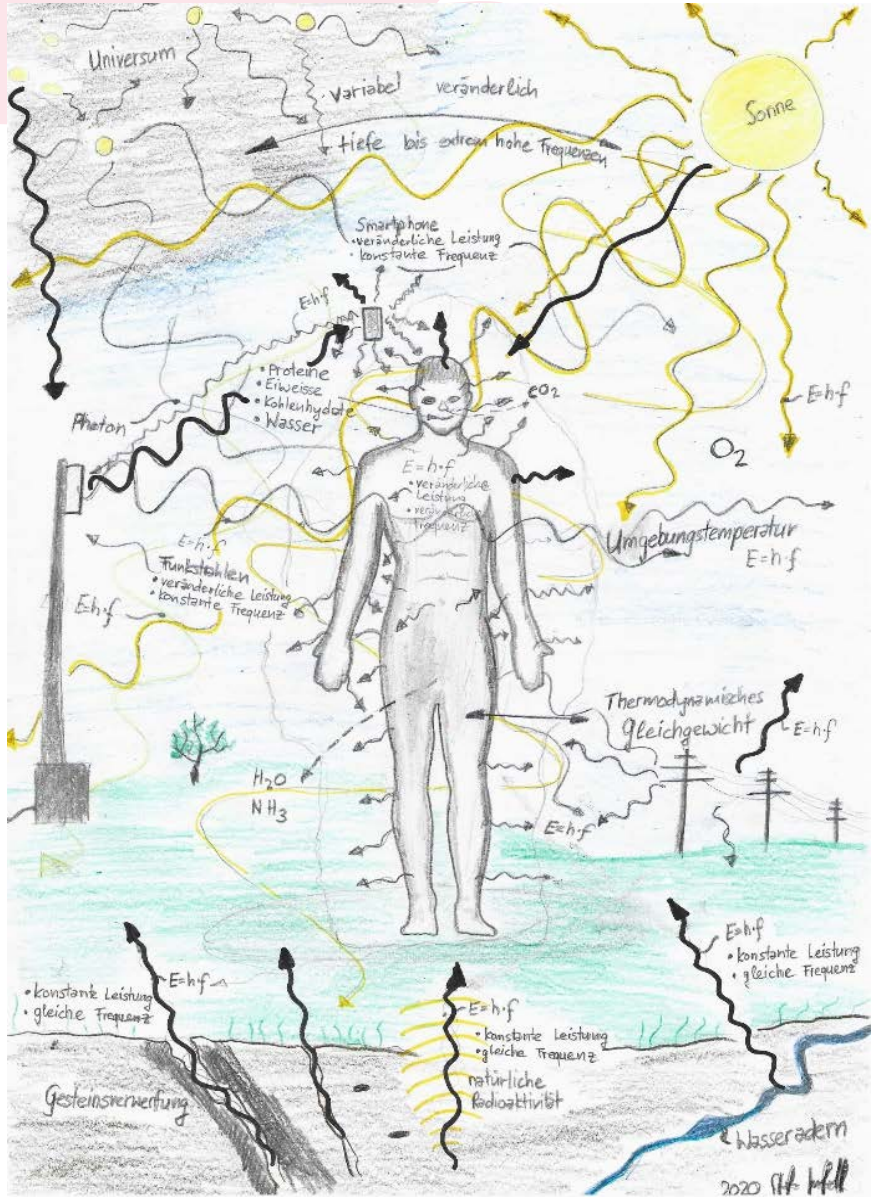 Universum
variabel veränderlich
tiefe bis extrem hohe Frequenzen
Sonne
Smartphone
• veränderliche Leistung
• konstante Frequenz
E=h·f
• Proteine
• Eiweisse
• Kohlenhydrate
• Wasser
Photon
CO2
E=h·f
O2
E=h·f
• veränderliche
Leistung
• veränderliche
Frequenz
Umgebungstemperatur
E=h·f
E=h·f
Funkstrahlen
• veränderliche Leistung
• konstante Frequenz
E=h·f
Thermodynamisches
Gleichgewicht
E=h·f
H2O
NH3
E=h·f
E=h·f
• konstante Leistung
• gleiche Frequenz
E=h·f
• konstante Leistung
• gleiche Frequenz
E=h·f
• konstante Leistung
• gleiche Frequenz
natürliche
Radioaktivität
Gesteinsverwerfung
Wasseradern
2020